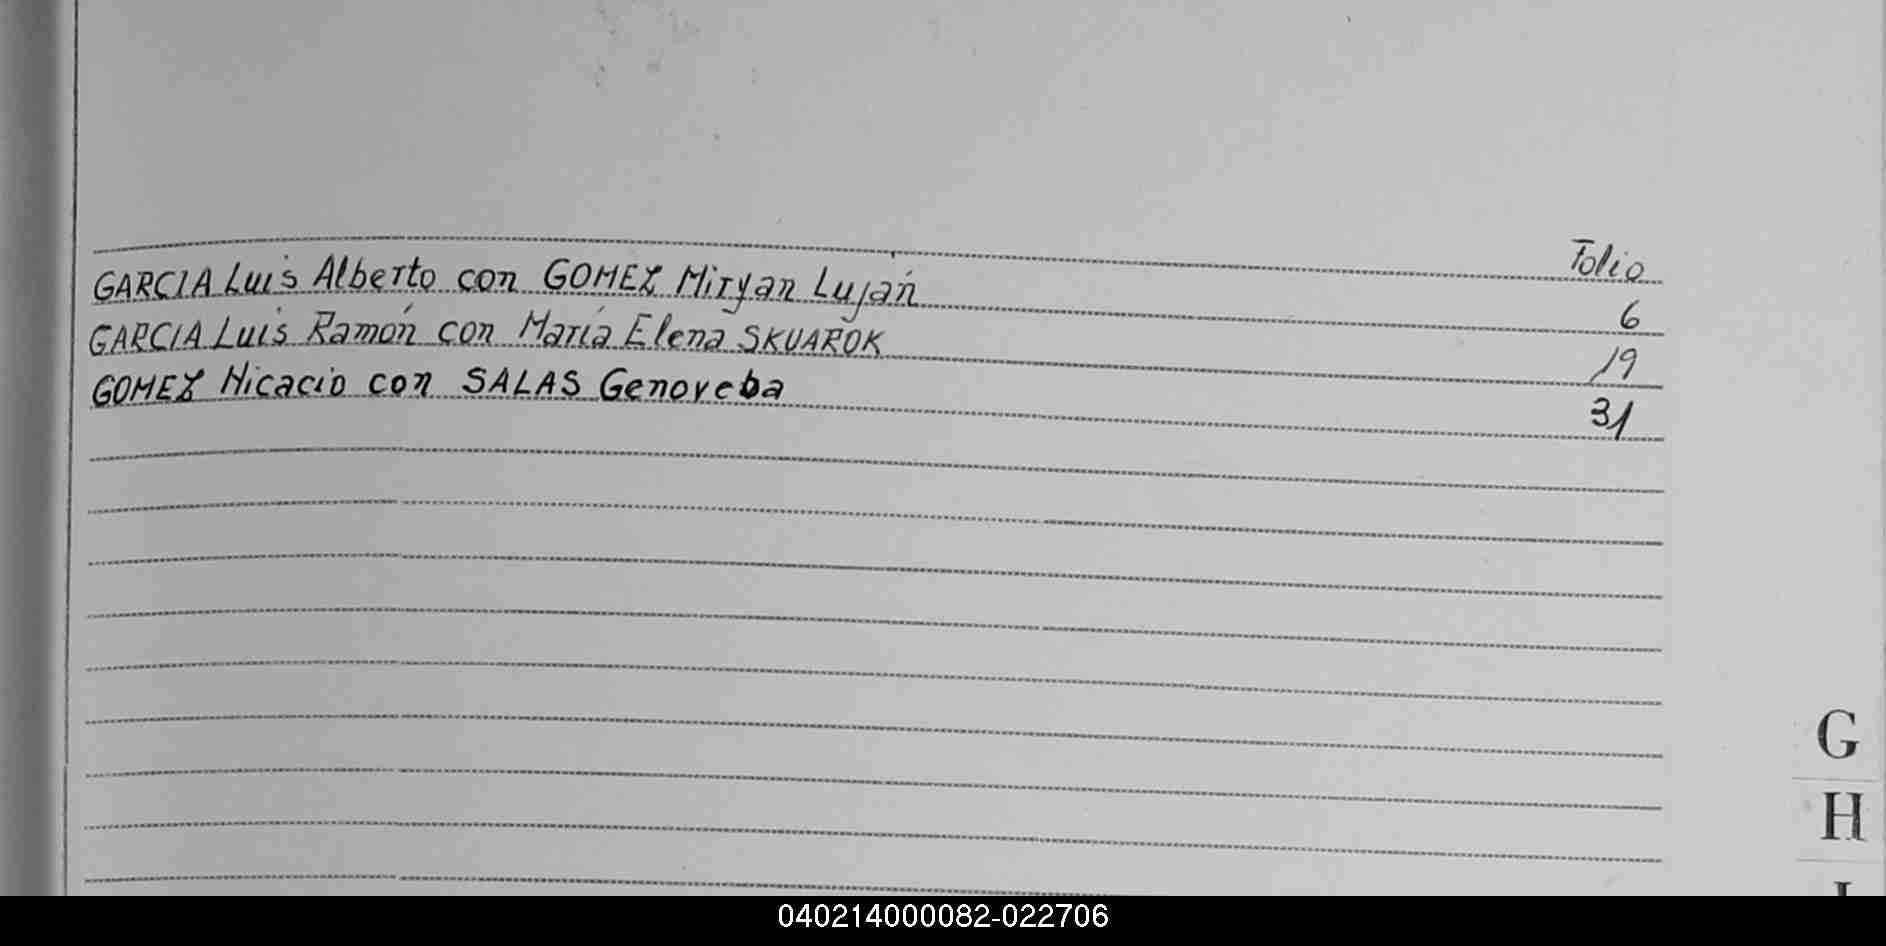 Folio
GARCIA Luis Alberto con GOMEZ Miryan Luján 6
GARCIA Luis Ramón con María Elena SKUAROK 19
GOMEZ Nicacio con SALAS Genoveba 31
G
H
I
040214000082-022706